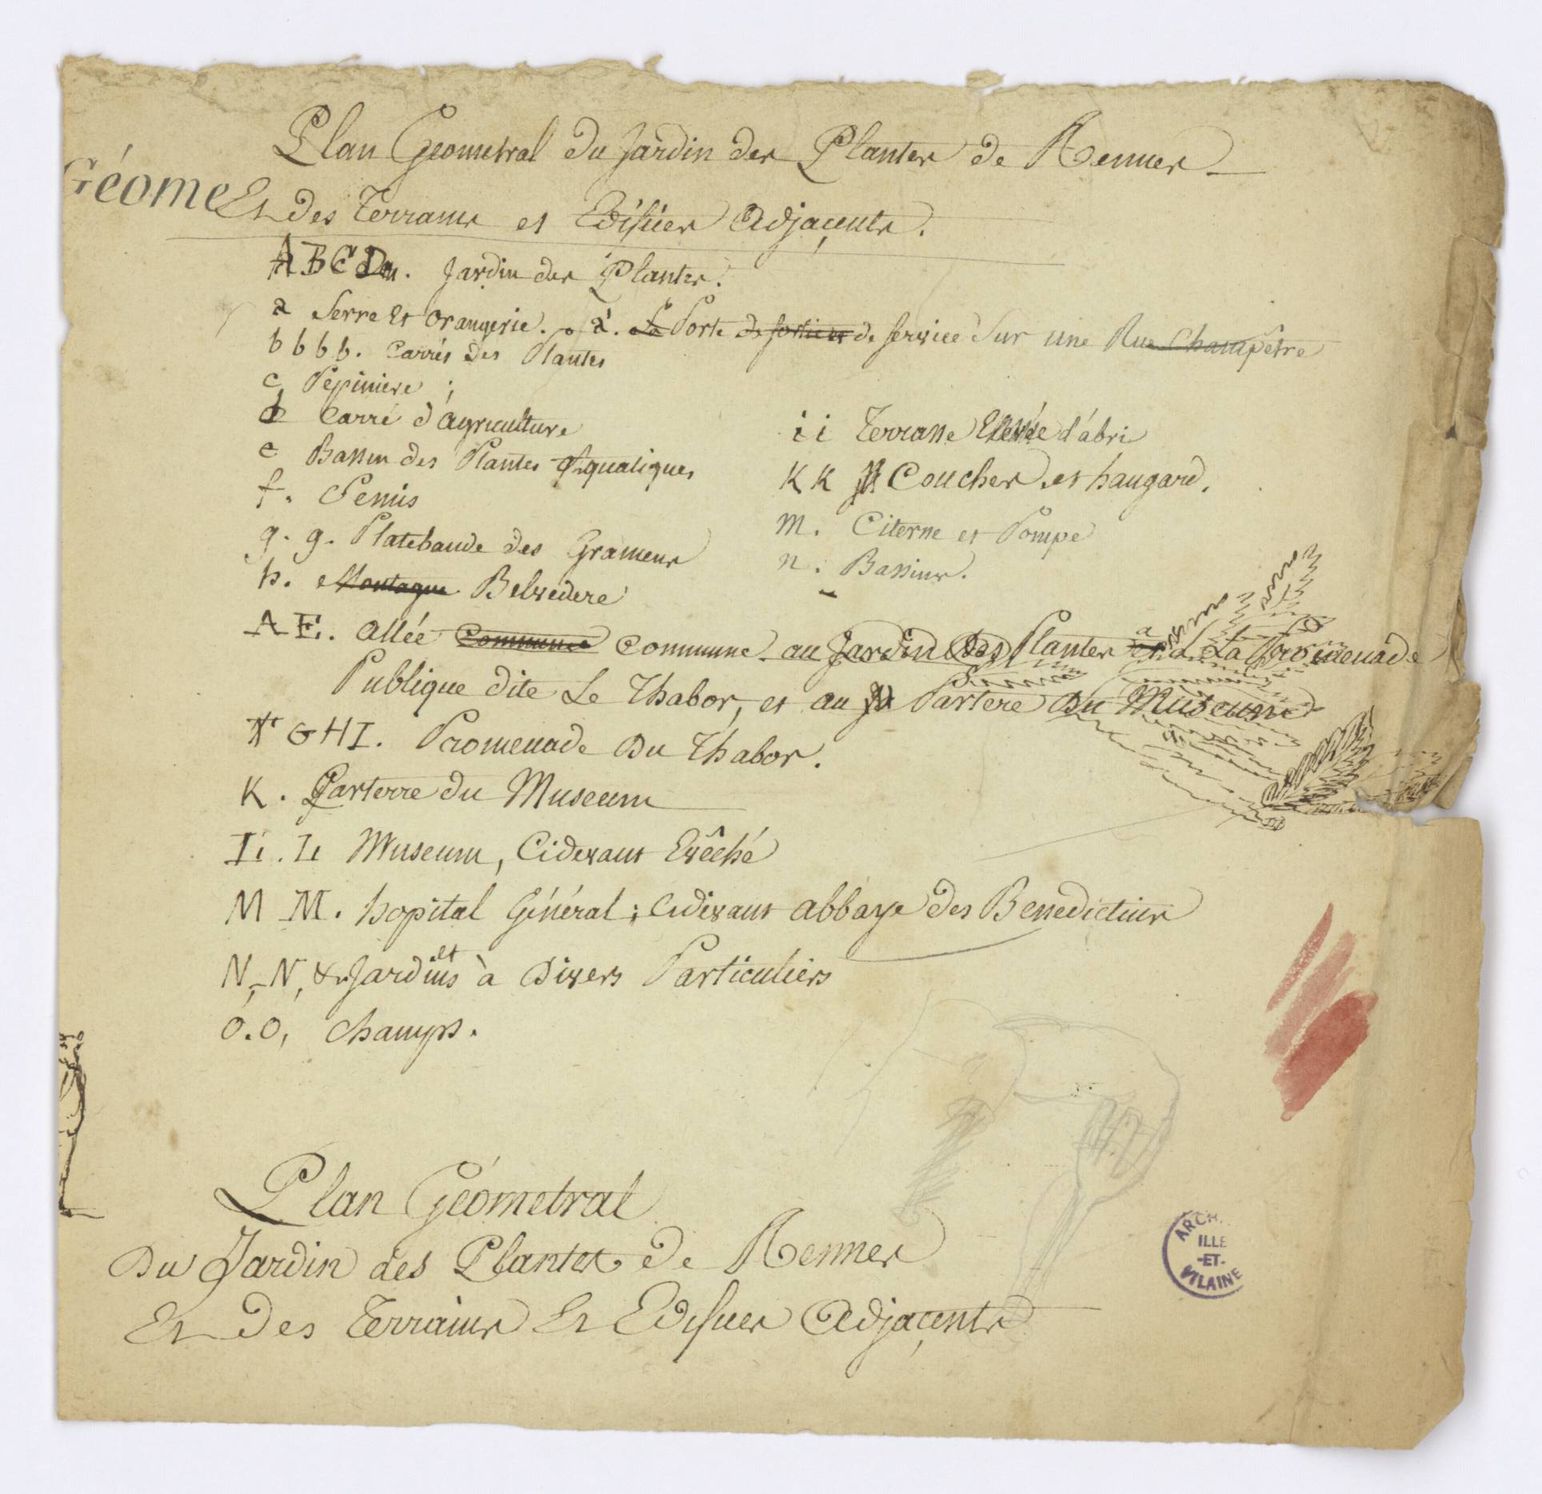 Plan Geometral du Jardin des Plantes de Rennes
Géome
Et des Terrains et Edifices Adjaçents.
ABCD. Jardin des Plantes.
a Serre et Orangerie. a. La Porte de service sur une Rue Champêtre
bbbb. Carrés des Plantes
c Pépiniere ;
d Carré d'Agriculture
e Bassin des Plantes Aquatiques
f. Semis
g. g. Platebande des Gramens
h. Montagne Belvedere
ii Terrasse Elevée d'abri
KK Couches et haugard.
m. Citerne et Pompe
n. Bassins.
AE. Allée commune commune au Jardin Des Plantes a La Promenade
Publique dite Le Thabor, et au Partere du Museum
GHI. Promenade Du Thabor.
K. Parterre du Museum
Museum, Cidevant Evêché
M M. hopital Général ; Cidevant abbaye des Benedictins
N, N, & Jardins et à Divers Particuliers
O.O, Champs.
Plan Géometral
Du Jardin des Plantes de Rennes
Et Des Terrains Et Edifices Adjaçents
ARCH.
ILLE
-ET-
VILAINE